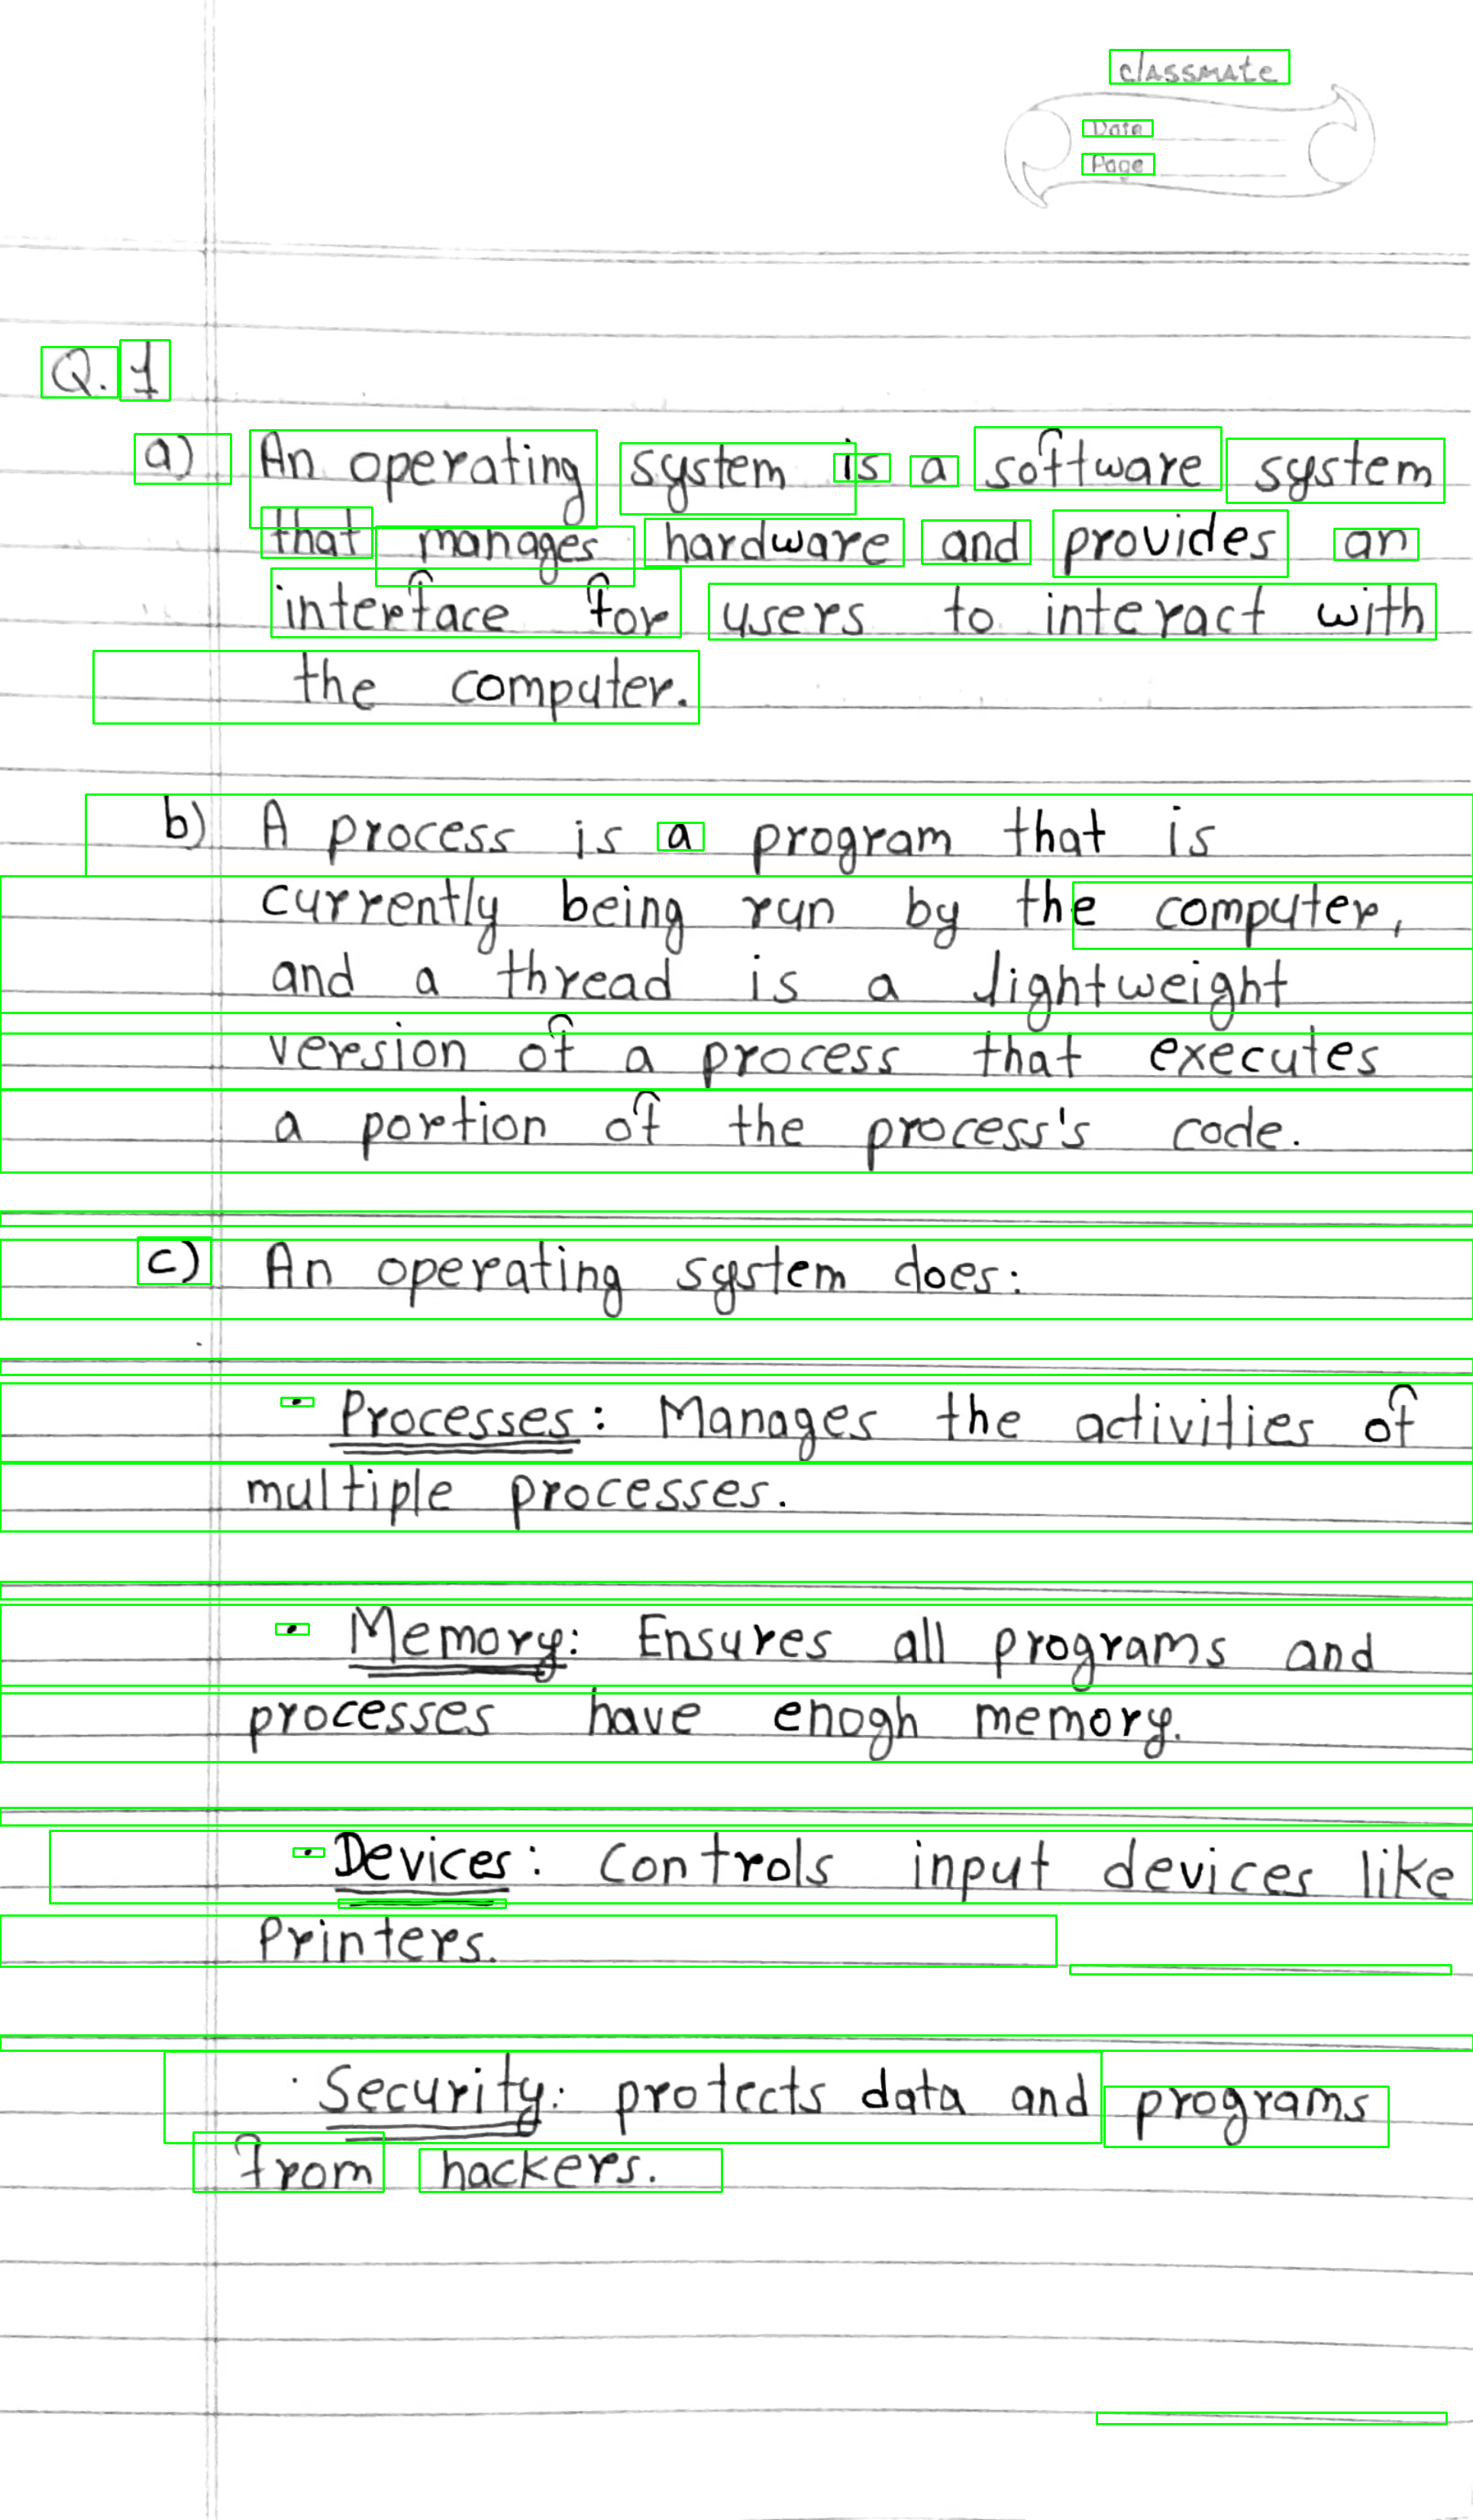 classmate
Date
Page
Q.1
a) An operating system is a software system
that manages hardware and provides an
interface for users to interact with
the computer.
b) A process is a program that is
currently being run by the computer,
and a thread is a lightweight
version of a process that executes
a portion of the process's code.
c) An operating system does:
· Processes: Manages the activities of
multiple processes.
· Memory: Ensures all programs and
processes have enogh memory.
· Devices: Controls input devices like
Printers.
· Security: protects data and programs
from hackers.